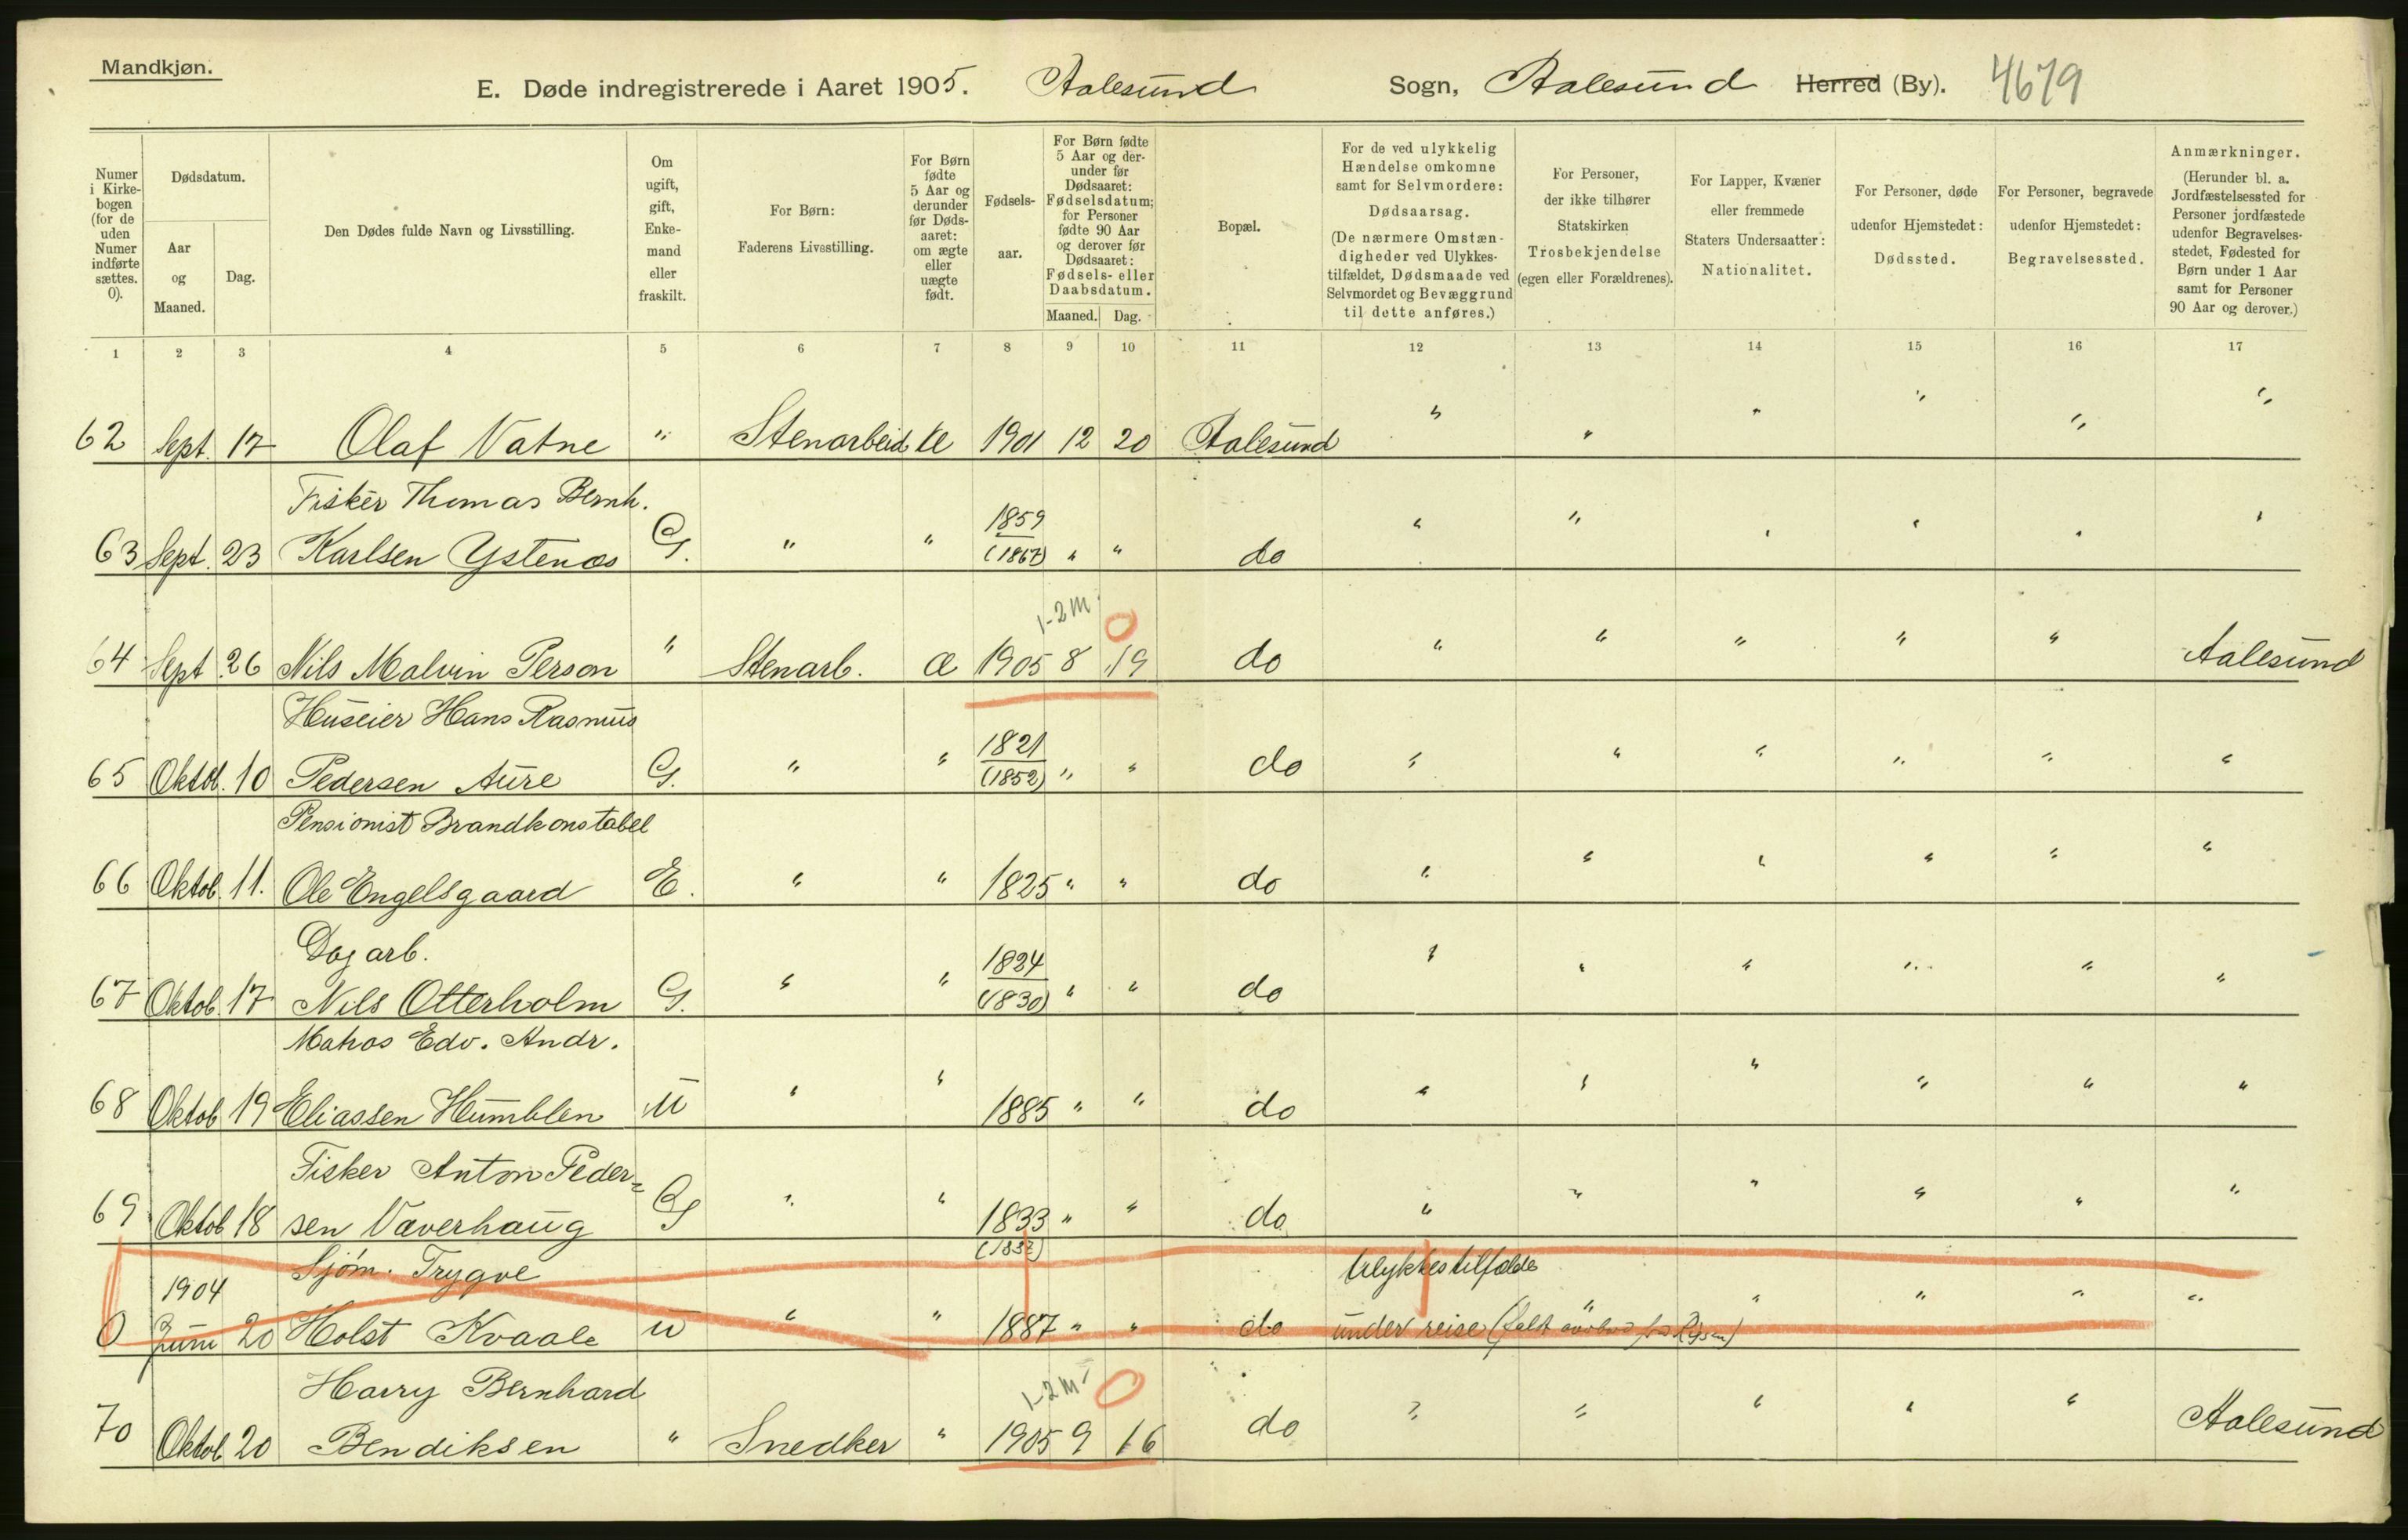 Mandkjøn.
E. Døde indregistrerede i Aaret 1905. Aalesund Sogn, Aalesund Herred (By). 4679
Numer i Kirke-bogen (for de uden Numer indførte sættes. 0).
Dødsdatum.
Aar og Maaned.
Dag.
Den Dødes fulde Navn og Livsstilling.
Om ugift, gift, Enke-mand eller fraskilt.
For Børn: Faderens Livsstilling.
For Børn fødte 5 Aar og derunder før Døds-aaret: om ægte eller uægte født.
Fødsels-aar.
For Børn fødte 5 Aar og der-under før Dødsaaret: Fødselsdatum; for Personer fødte 90 Aar og derover før Dødsaaret: Fødsels- eller Daabsdatum.
Maaned. Dag.
Bopæl.
For de ved ulykkelig Hændelse omkomne samt for Selvmordere: Dødsaarsag. (De nærmere Omstæn-digheder ved Ulykkes-tilfældet, Dødsmaade ved Selvmordet og Bevæggrund til dette anføres.)
For Personer, der ikke tilhører Statskirken Trosbekjendelse (egen eller Forældrenes).
For Lapper, Kvæner eller fremmede Staters Undersaatter: Nationalitet.
For Personer, døde udenfor Hjemstedet: Dødssted.
For Personer, begravede udenfor Hjemstedet: Begravelsessted.
Anmærkninger. (Herunder bl. a. Jordfæstelsessted for Personer jordfæstede udenfor Begravelses-stedet, Fødested for Børn under 1 Aar samt for Personer 90 Aar og derover.)
1 2 3 4 5 6 7 8 9 10 11 12 13 14 15 16 17
62 Sept. 17 Olaf Vatne " Stenarbeid. Æ 1901 12 20 Aalesund " " " " " "
Fisker Thomas Bernh.
1859
63 Sept. 23 Karlsen Ystenæs G. " " (1867) " " do " " " " " "
1-2 m. 0
64 Sept. 26 Nils Malvin Person " Stenarb. Æ 1905 8 19 do " " " " " Aalesund
Huseier Hans Rasmus
1821
65 Oktob. 10 Pedersen Aure G. " " (1852) " " do " " " " " "
Pensionist Brandkonstabel
66 Oktob. 11. Ole Engelsgaard E. " " 1825 " " do " " " " " "
Dagarb.
1824
67 Oktob. 17 Nils Otterholm G. " " (1830) " " do " " " " " "
Matros Edv. Andr.
68 Oktob 19 Eliassen Humblen U " " 1885 " " do " " " " " "
Fisker Anton Peder-
69 Oktob 18 sen Væverhaug G " " 1833 " " do " " " " " "
1904 Sjøm. Trygve Ulykkestilfælde
0 Juni 20 Holst Kvaale U " " 1887 " " do under reise (falt " " " " "
Harry Bernhard 1-2 m. 0
70 Oktob. 20 Bendiksen " Snedker " 1905 9 16 do " " " " " Aalesund